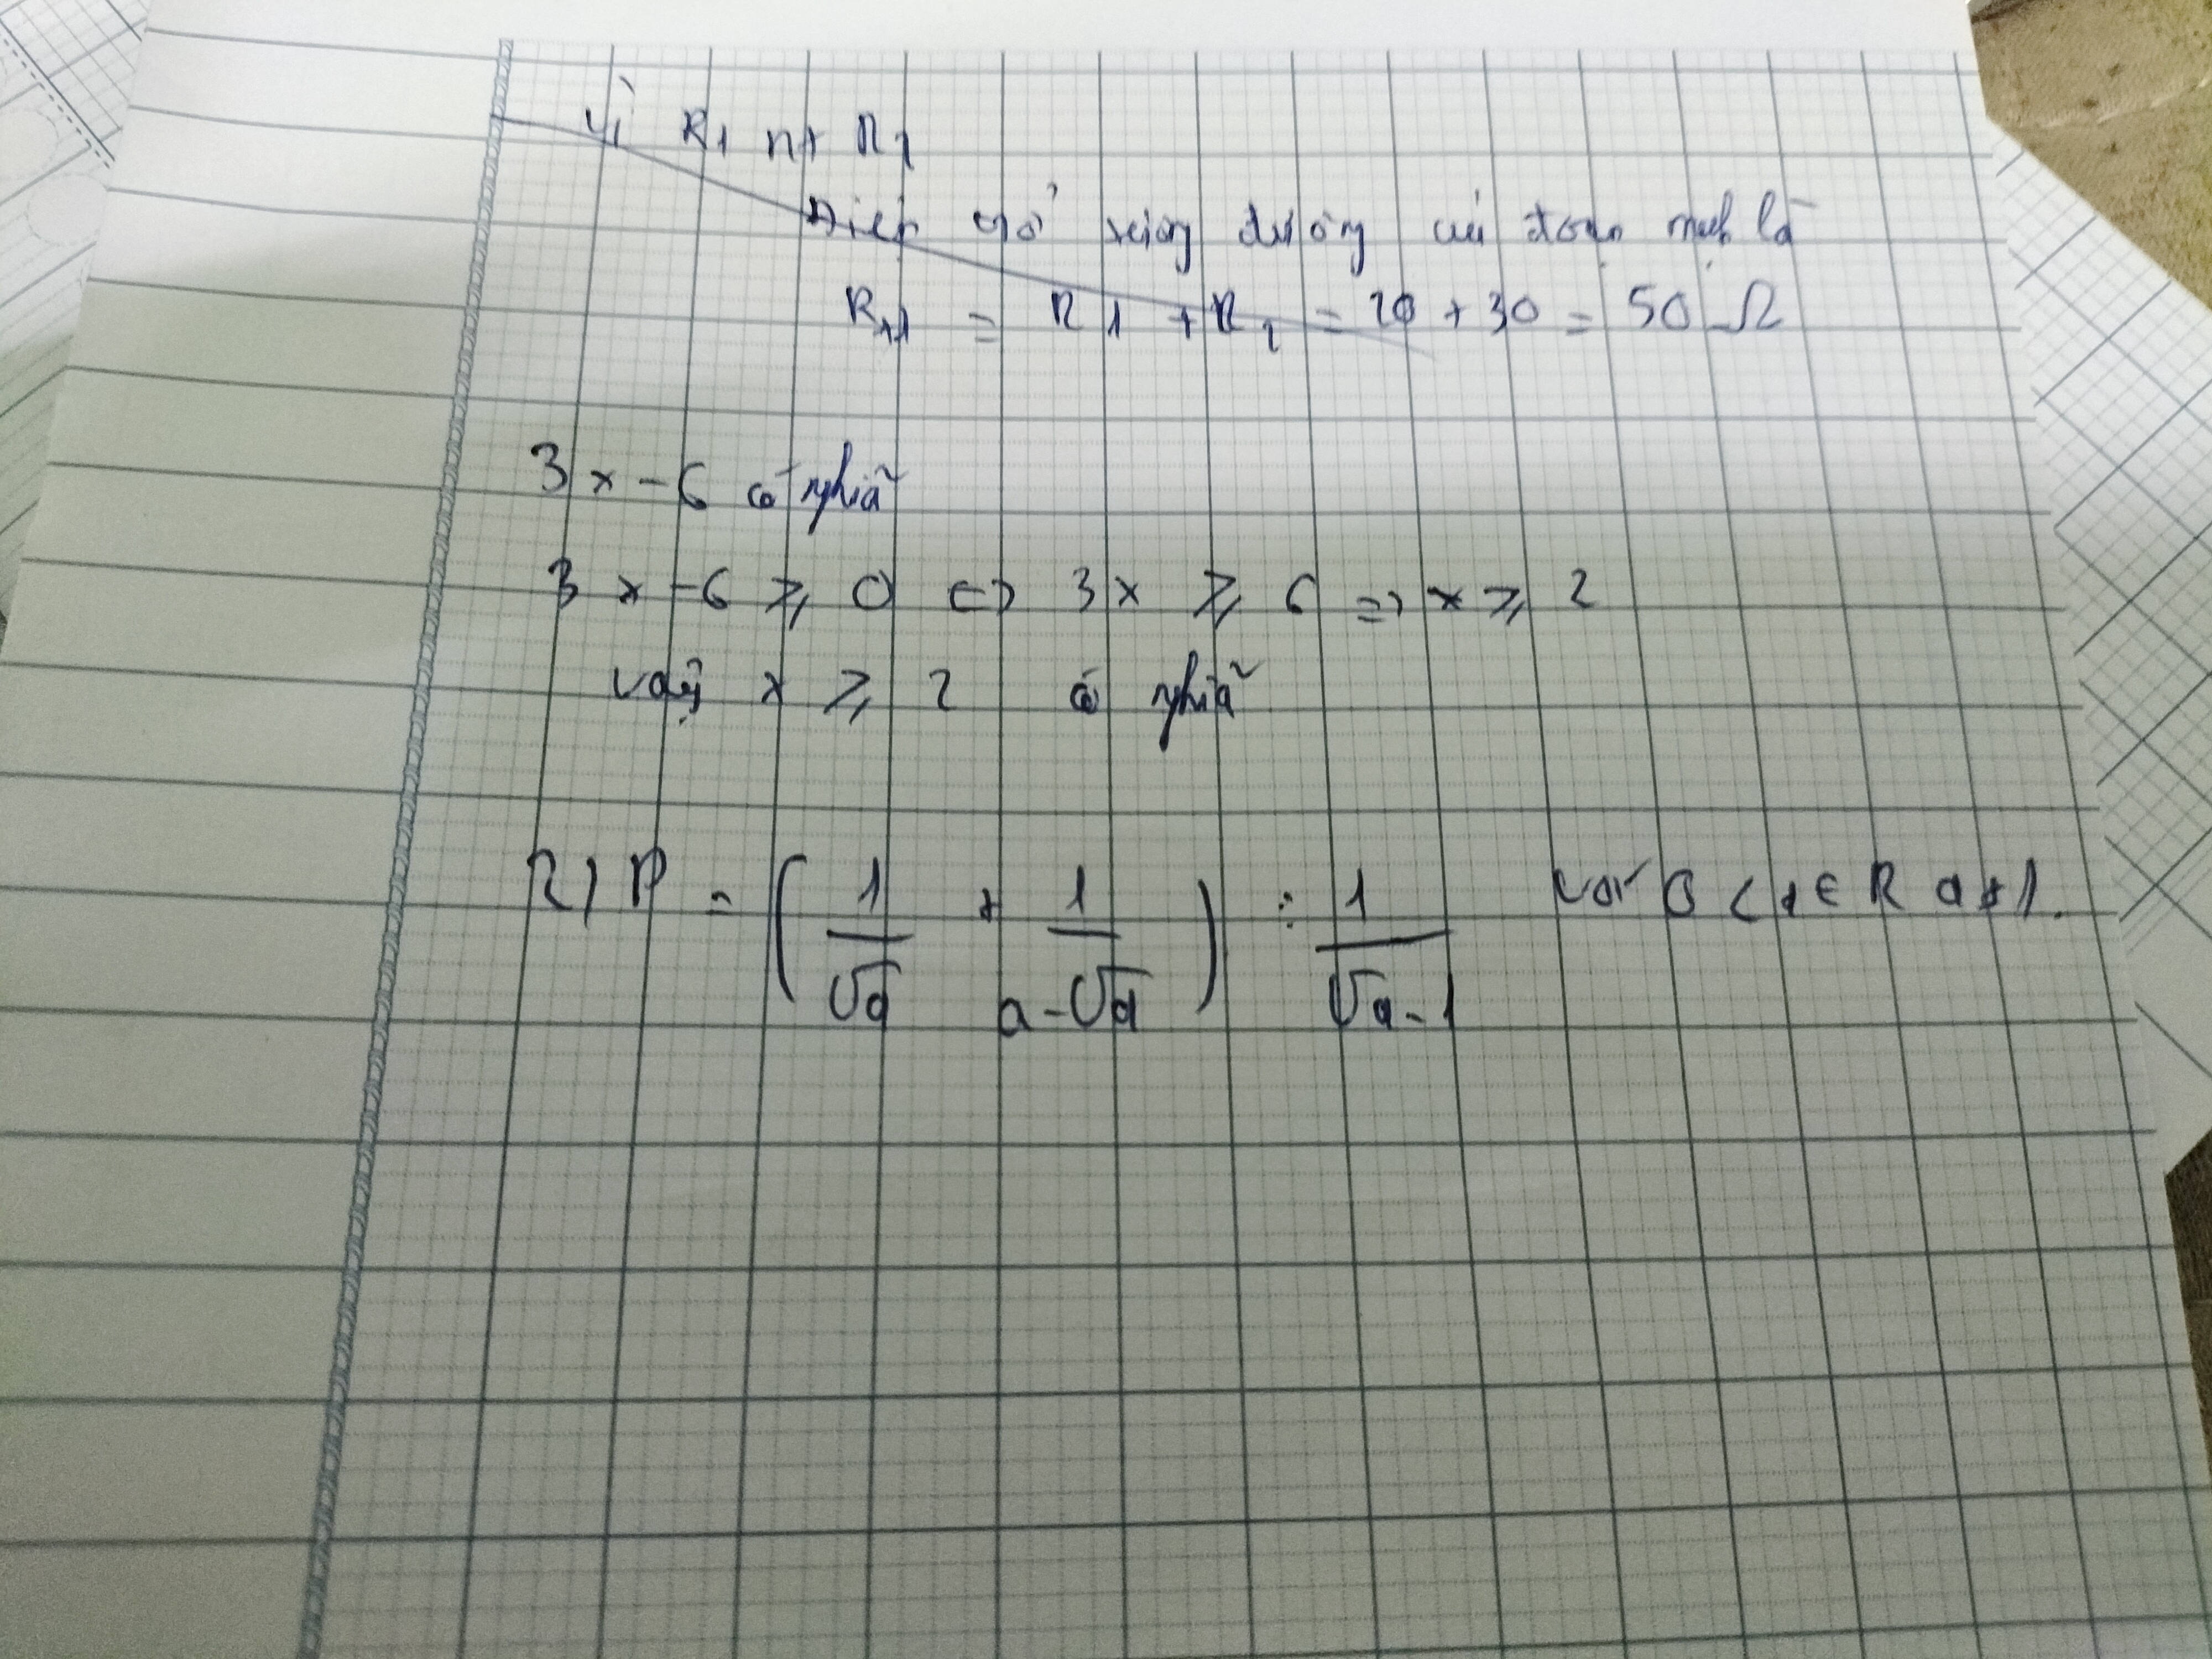 Vì R1 nt R2
Điện trở tương đương của đoạn mạch là
Rtđ = R1 + R2 = 20 + 30 = 50 Ω
3x - 6 có nghĩa
3x - 6 ≥ 0 <=> 3x ≥ 6 => x ≥ 2
vậy x ≥ 2 có nghĩa
2) P = (1/√a + 1/(a-√a)) : 1/(√a-1) với 0 < ∈ R a ≠ 1.